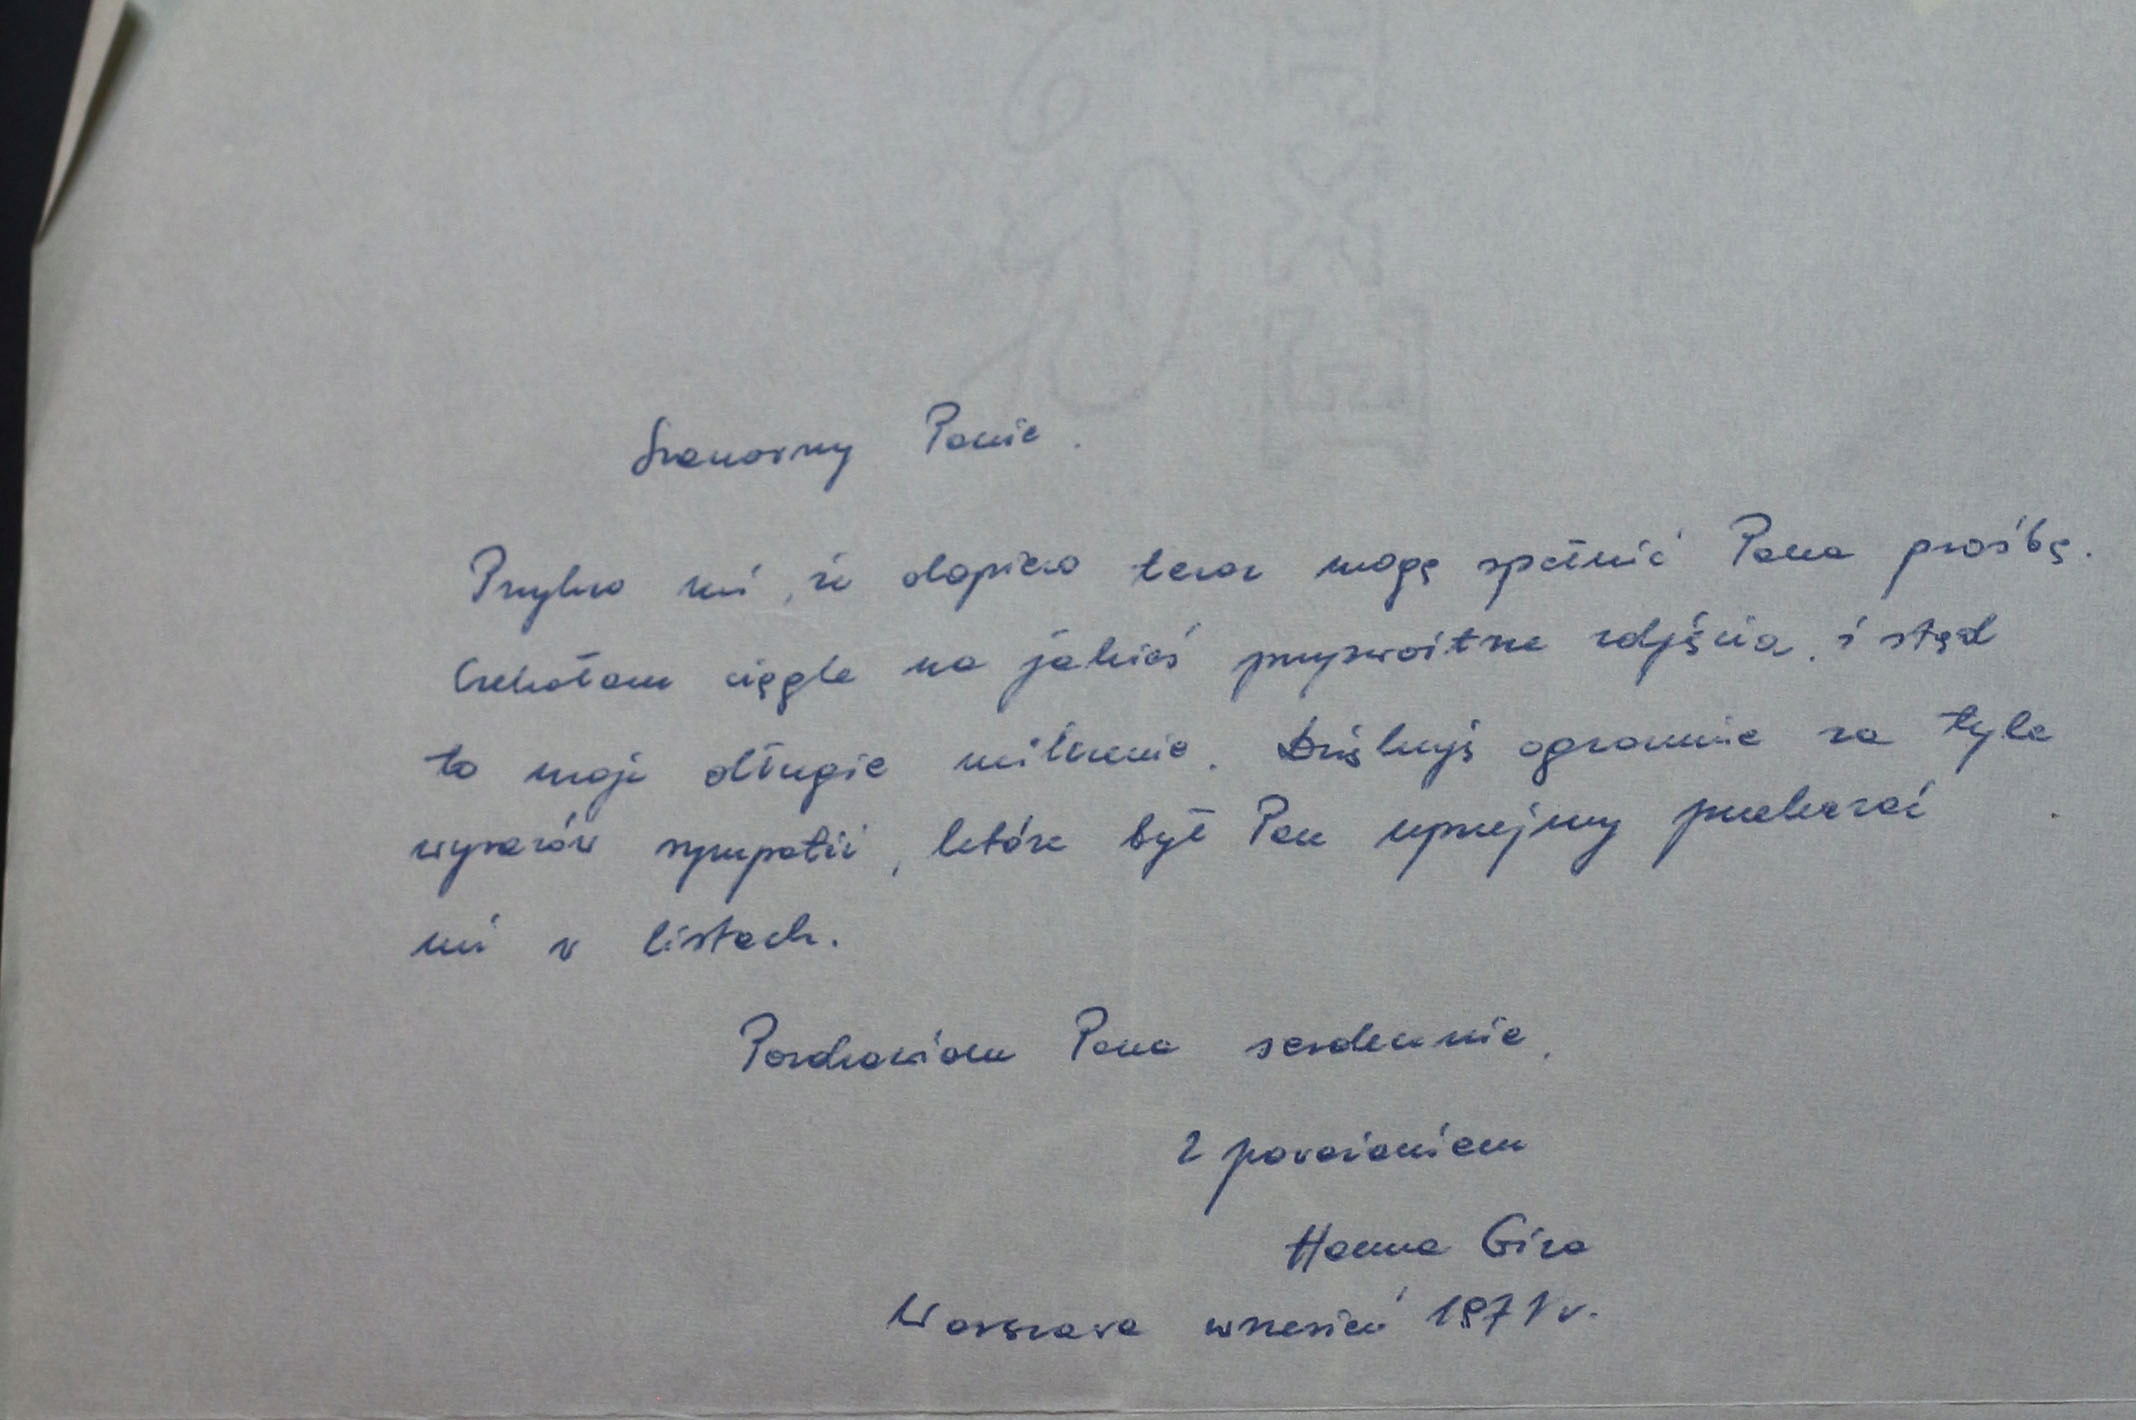 Szanowny Panie.
Przykro mi, że dopiero teraz mogę spełnić Pana prośbę.
Czekałam ciągle na jakieś przyzwoitsze zdjęcia, i stąd
to moje długie milczenie. Dziękuję ogromnie za tyle
wyrazów sympatii, które był Pan uprzejmy przekazać
mi w listach.
Pozdrawiam Pana serdecznie,
Z poważaniem
Hanna Giza
Warszawa wrzesień 1971 r.